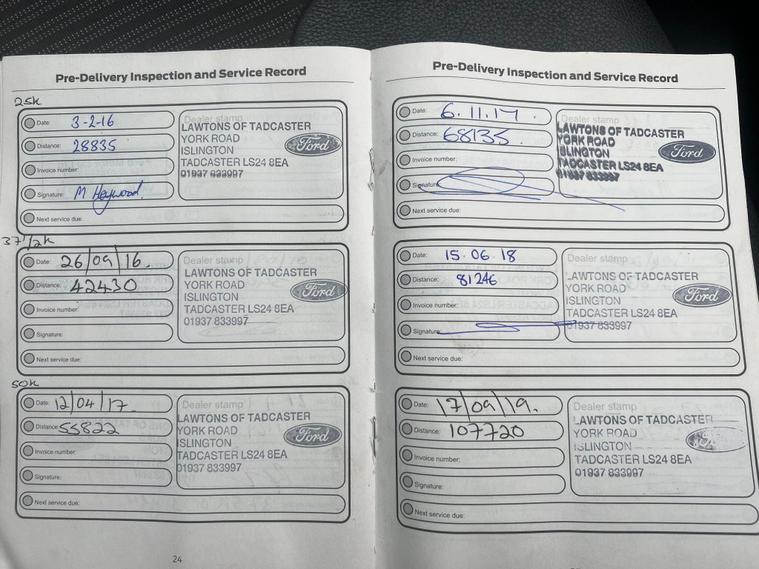 Pre-Delivery Inspection and Service Record
25K
Date: 3-2-16
Distance: 28835
Invoice number:
Signature: M Heywood
Next service due:
Dealer stamp
LAWTONS OF TADCASTER
YORK ROAD
ISLINGTON
TADCASTER LS24 8EA
01937 833997
Ford
37 1/2K
Date: 26/09/16.
Distance: 42430
Invoice number:
Signature:
Next service due:
Dealer stamp
LAWTONS OF TADCASTER
YORK ROAD
ISLINGTON
TADCASTER LS24 8EA
01937 833997
Ford
50K
Date: 12/04/17.
Distance: 55822
Invoice number:
Signature:
Next service due:
Dealer stamp
LAWTONS OF TADCASTER
YORK ROAD
ISLINGTON
TADCASTER LS24 8EA
01937 833997
Ford
24
Pre-Delivery Inspection and Service Record
Date: 6.11.17.
Distance: 68135
Invoice number:
Signature:
Next service due:
Dealer stamp
LAWTONS OF TADCASTER
YORK ROAD
ISLINGTON
TADCASTER LS24 8EA
01937 833997
Ford
Date: 15.06.18
Distance: 81246
Invoice number:
Signature:
Next service due:
Dealer stamp
LAWTONS OF TADCASTER
YORK ROAD
ISLINGTON
TADCASTER LS24 8EA
01937 833997
Ford
Date: 17/09/19.
Distance: 107720
Invoice number:
Signature:
Next service due:
Dealer stamp
LAWTONS OF TADCASTER
YORK ROAD
ISLINGTON
TADCASTER LS24 8EA
01937 833997
Ford